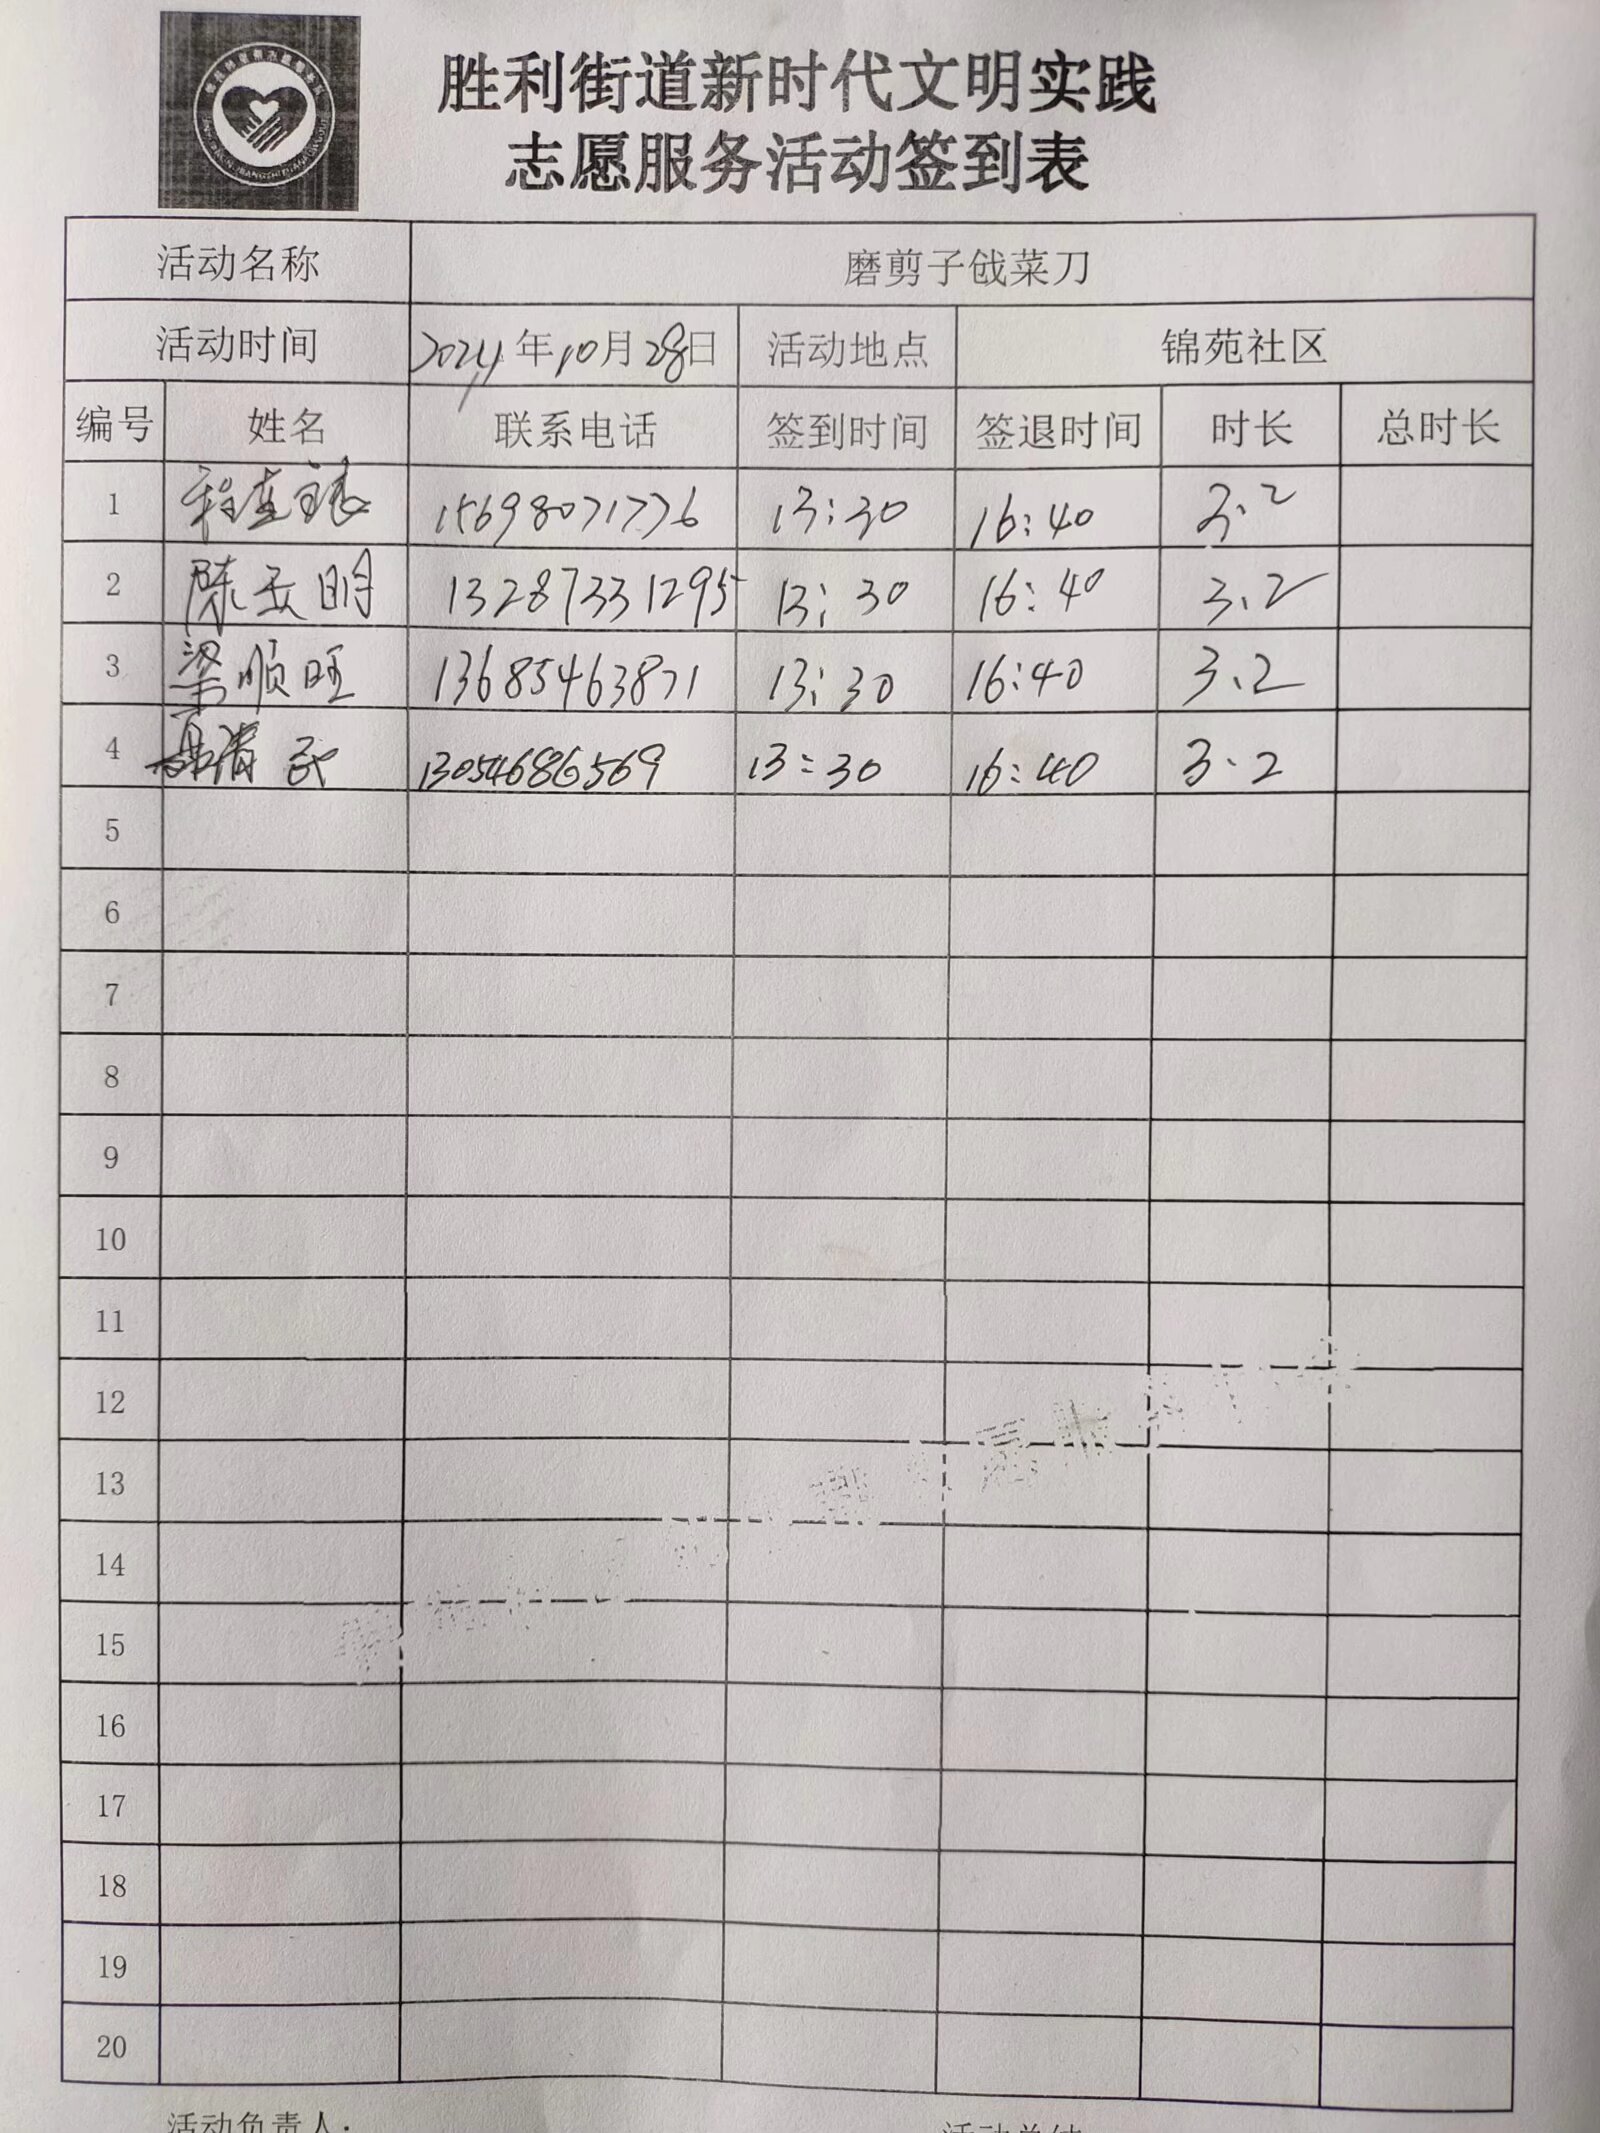 胜利街道新时代文明实践
志愿服务活动签到表
活动名称 磨剪子戗菜刀
活动时间 2024年10月28日 活动地点 锦苑社区
编号 姓名 联系电话 签到时间 签退时间 时长 总时长
1 15698071776 13:30 16:40 3.2
2 陈玉明 13287331295 13:30 16:40 3.2
3 梁顺旺 13685463871 13:30 16:40 3.2
4 13054686569 13:30 16:40 3.2
5
6
7
8
9
10
11
12
13
14
15
16
17
18
19
20
活动负责人: